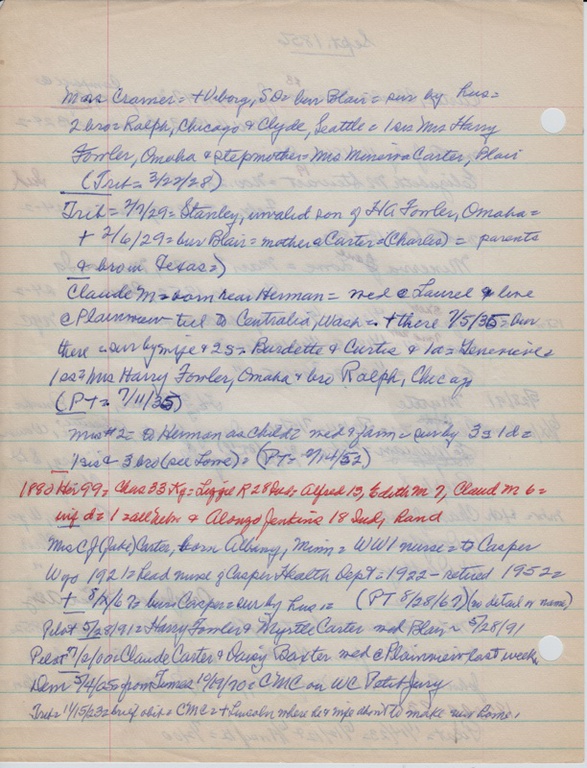 Sept. 1856
Mrs Cramer = + Viborg, S.D = bur Blair = sur by hus =
2 bro = Ralph, Chicago & Clyde, Seattle = 1 sis Mrs Harry
Fowler, Omaha & stepmother = Mrs Minerva Carter, Blair
(Trib = 3/22/28)
Trib = 2/7/29 = Stanley, invalid son of HA Fowler, Omaha =
+ 2/6/29 = bur Blair = mother a Carter = (Charles) = parents
& bro in Texas =)
Claude M = born near Herman = med c Laurel & live
c Plainview til to Centralia, Wash = + there 7/5/35 = bur
there = sur by wife & 2S = Burdette & Curtis & 1da = Genevieve =
1 sis = Mrs Harry Fowler, Omaha & bro Ralph, Chicago
(PT = 7/11/35)
Mrs #2 = to Herman as child = med & farm = sur by 3s 1d =
1 sis & 3 bro (see Lowe) = (PT = 8/14/52)
1880 Her 99 = Chas 33 Ky = Lizzie R 28 Ind, Alfred 13, Edith M 7, Claud M 6 =
d = 1 = all Nebr & Alonzo Jenkins 18 Ind, hand
Mrs CJ (Jake) Carter, born Albany, Minn = WW1 nurse = to Casper
Wyo 1921 = head nurse of Casper Health Dept = 1922 - retired 1952 =
+ 8/ /67 = bur Casper = sur by hus = (PT 8/28/67) (no detail or name)
Pilot 5/28/91 = Harry Fowler & Myrtle Carter med Blair = 5/28/91
Pilot 7/2/00 = Claude Carter & Daisy Baxter med c Plainview last week
Dem 5/4/05 = from Times 10/19/70 = CMC on UC Petit Jury
Trib = 1/15/23 = brief obit = CMC = + Lincoln where he & wife about to make new home.